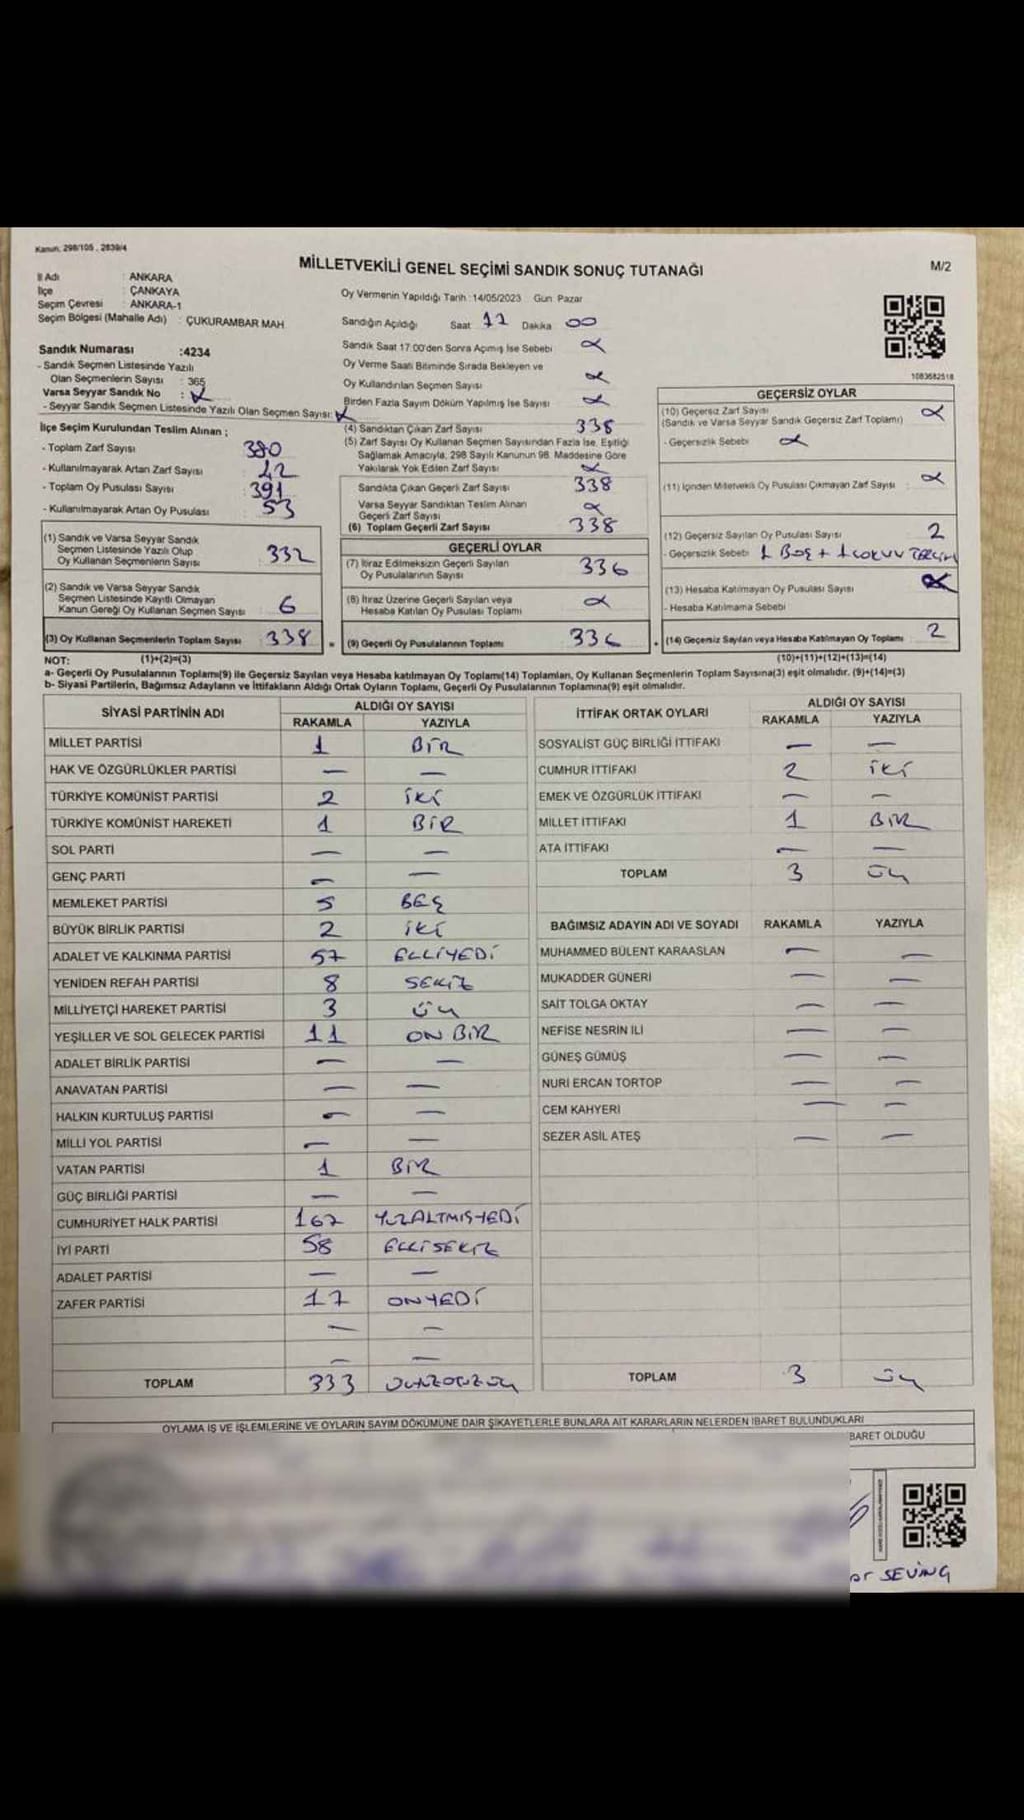 Kanun: 298/105 , 2839/4
MİLLETVEKİLİ GENEL SEÇİMİ SANDIK SONUÇ TUTANAĞI
M/2
İl Adı : ANKARA
İlçe : ÇANKAYA
Seçim Çevresi : ANKARA-1
Seçim Bölgesi (Mahalle Adı) : ÇUKURAMBAR MAH
Sandık Numarası :4234
- Sandık Seçmen Listesinde Yazılı
Olan Seçmenlerin Sayısı : 365
Varsa Seyyar Sandık No :
- Seyyar Sandık Seçmen Listesinde Yazılı Olan Seçmen Sayısı:
İlçe Seçim Kurulundan Teslim Alınan ;
- Toplam Zarf Sayısı 380
- Kullanılmayarak Artan Zarf Sayısı 42
- Toplam Oy Pusulası Sayısı 391
- Kullanılmayarak Artan Oy Pusulası 53
(1) Sandık ve Varsa Seyyar Sandık
Seçmen Listesinde Yazılı Olup
Oy Kullanan Seçmenlerin Sayısı 332
(2) Sandık ve Varsa Seyyar Sandık
Seçmen Listesinde Kayıtlı Olmayan
Kanun Gereği Oy Kullanan Seçmen Sayısı 6
(3) Oy Kullanan Seçmenlerin Toplam Sayısı 338
Oy Vermenin Yapıldığı Tarih :14/05/2023 Gün Pazar
Sandığın Açıldığı Saat 17 Dakika 00
Sandık Saat 17:00'den Sonra Açımış İse Sebebi
Oy Verme Saati Bitiminde Sırada Bekleyen ve
Oy Kullandırılan Seçmen Sayısı
Birden Fazla Sayım Döküm Yapılmış İse Sayısı
(4) Sandıktan Çıkan Zarf Sayısı 338
(5) Zarf Sayısı Oy Kullanan Seçmen Sayısından Fazla İse, Eşitliği
Sağlamak Amacıyla, 298 Sayılı Kanunun 98. Maddesine Göre
Yakılarak Yok Edilen Zarf Sayısı
Sandıkta Çıkan Geçerli Zarf Sayısı 338
Varsa Seyyar Sandıktan Teslim Alınan
Geçerli Zarf Sayısı
(6) Toplam Geçerli Zarf Sayısı 338
GEÇERLİ OYLAR
(7) İtiraz Edilmeksizin Geçerli Sayılan
Oy Pusulalarının Sayısı 336
(8) İtiraz Üzerine Geçerli Sayılan veya
Hesaba Katılan Oy Pusulası Toplamı
(9) Geçerli Oy Pusulalarının Toplamı 336
1083682518
GEÇERSİZ OYLAR
(10) Geçersiz Zarf Sayısı
(Sandık ve Varsa Seyyar Sandık Geçersiz Zarf Toplamı)
- Geçersizlik Sebebi
(11) İçinden Milletvekili Oy Pusulası Çıkmayan Zarf Sayısı :
(12) Geçersiz Sayılan Oy Pusulası Sayısı 2
- Geçersizlik Sebebi 1 BOŞ + 1
(13) Hesaba Katılmayan Oy Pusulası Sayısı
- Hesaba Katılmama Sebebi
(14) Geçersiz Sayılan veya Hesaba Katılmayan Oy Toplamı 2
NOT: (1)+(2)=(3) (10)+(11)+(12)+(13)=(14)
a- Geçerli Oy Pusulalarının Toplamı(9) ile Geçersiz Sayılan veya Hesaba katılmayan Oy Toplamı(14) Toplamları, Oy Kullanan Seçmenlerin Toplam Sayısına(3) eşit olmalıdır. (9)+(14)=(3)
b- Siyasi Partilerin, Bağımsız Adayların ve İttifakların Aldığı Ortak Oyların Toplamı, Geçerli Oy Pusulalarının Toplamına(9) eşit olmalıdır.
SİYASİ PARTİNİN ADI ALDIĞI OY SAYISI
RAKAMLA YAZIYLA
MİLLET PARTİSİ 1 BİR
HAK VE ÖZGÜRLÜKLER PARTİSİ — —
TÜRKİYE KOMÜNİST PARTİSİ 2 İKİ
TÜRKİYE KOMÜNİST HAREKETİ 1 BİR
SOL PARTİ — —
GENÇ PARTİ — —
MEMLEKET PARTİSİ 5 BEŞ
BÜYÜK BİRLİK PARTİSİ 2 İKİ
ADALET VE KALKINMA PARTİSİ 57 ELLİYEDİ
YENİDEN REFAH PARTİSİ 8 SEKİZ
MİLLİYETÇİ HAREKET PARTİSİ 3 ÜÇ
YEŞİLLER VE SOL GELECEK PARTİSİ 11 ON BİR
ADALET BİRLİK PARTİSİ — —
ANAVATAN PARTİSİ — —
HALKIN KURTULUŞ PARTİSİ — —
MİLLİ YOL PARTİSİ — —
VATAN PARTİSİ 1 BİR
GÜÇ BİRLİĞİ PARTİSİ — —
CUMHURİYET HALK PARTİSİ 167 YÜZALTMIŞYEDİ
İYİ PARTİ 58 ELLİSEKİZ
ADALET PARTİSİ — —
ZAFER PARTİSİ 17 ONYEDİ
— —
— —
TOPLAM 333 ÜÇYÜZOTUZÜÇ
İTTİFAK ORTAK OYLARI ALDIĞI OY SAYISI
RAKAMLA YAZIYLA
SOSYALİST GÜÇ BİRLİĞİ İTTİFAKI — —
CUMHUR İTTİFAKI 2 İKİ
EMEK VE ÖZGÜRLÜK İTTİFAKI — —
MİLLET İTTİFAKI 1 BİR
ATA İTTİFAKI — —
TOPLAM 3 ÜÇ
BAĞIMSIZ ADAYIN ADI VE SOYADI RAKAMLA YAZIYLA
MUHAMMED BÜLENT KARAASLAN — —
MUKADDER GÜNERİ — —
SAİT TOLGA OKTAY — —
NEFİSE NESRİN İLİ — —
GÜNEŞ GÜMÜŞ — —
NURİ ERCAN TORTOP — —
CEM KAHYERİ — —
SEZER ASİL ATEŞ — —
TOPLAM 3 ÜÇ
OYLAMA İŞ VE İŞLEMLERİNE VE OYLARIN SAYIM DÖKÜMÜNE DAİR ŞİKAYETLERLE BUNLARA AİT KARARLARIN NELERDEN İBARET BULUNDUKLARI
BARET OLDUĞU
SEVİNÇ